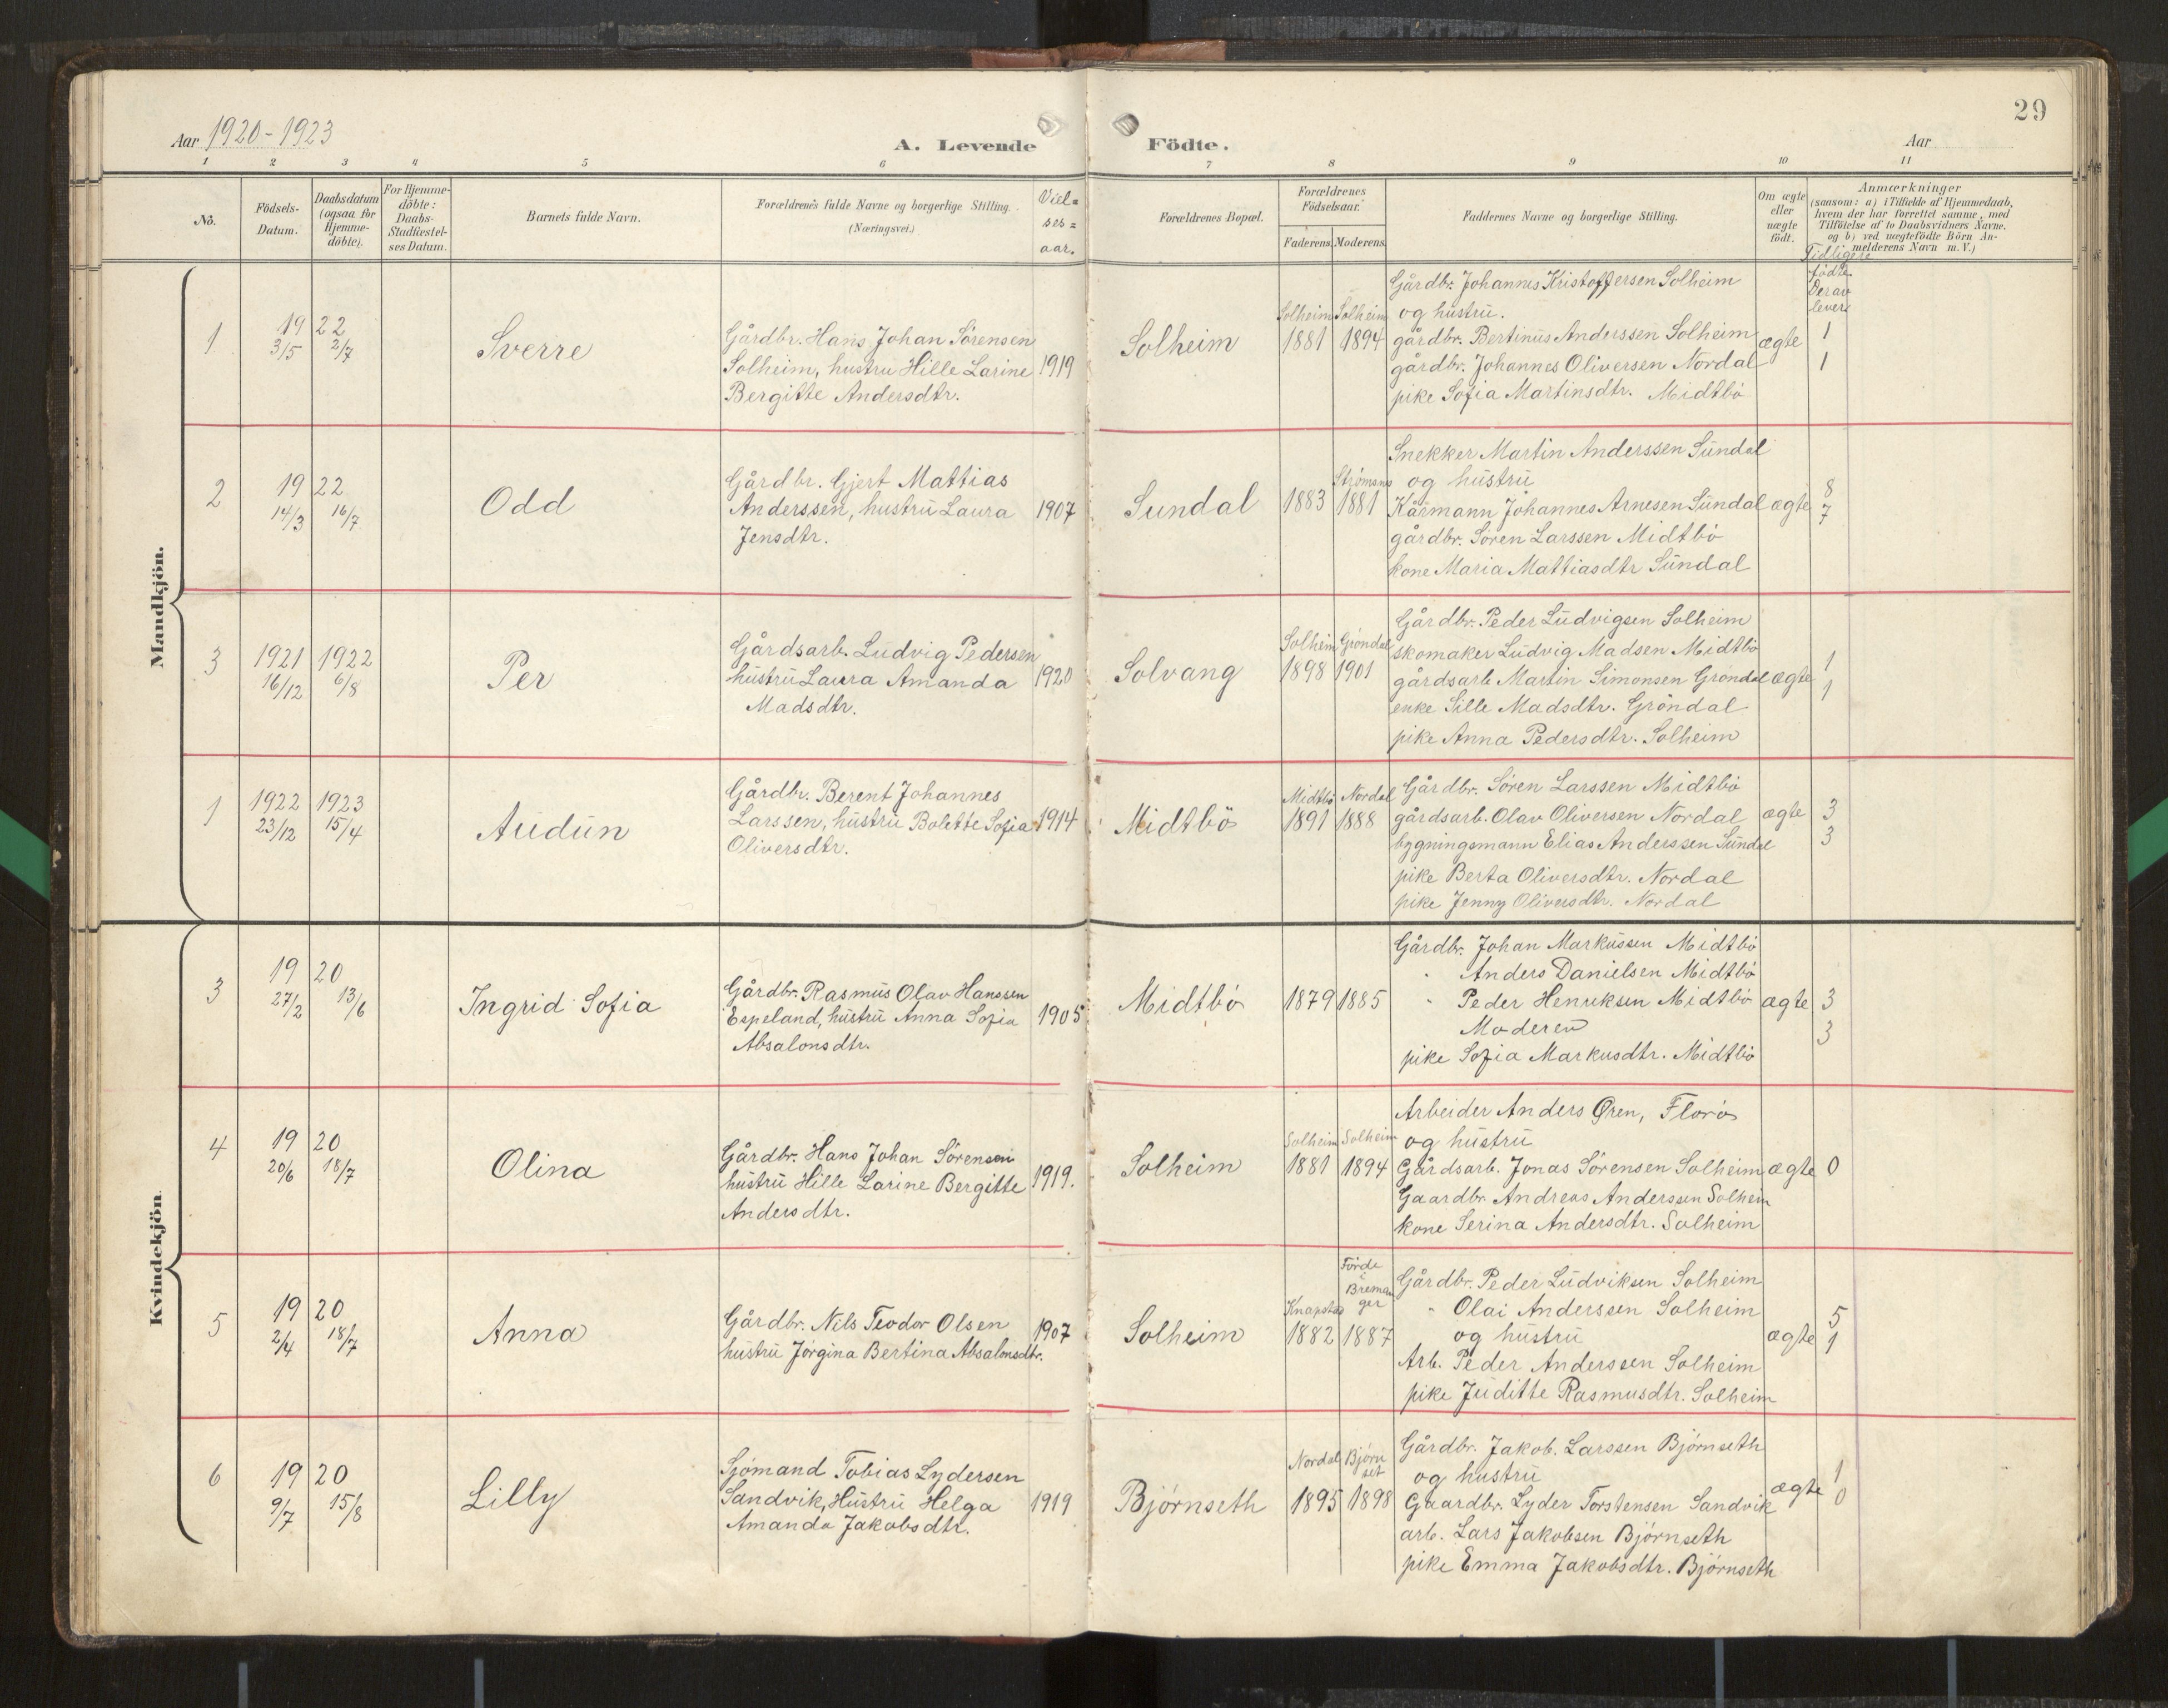 29
Aar 1920-1923
A. Levende Födte.
Aar
1 2 3 4 5 6 7 8 9 10 11
No.
Födsels-
Datum.
Daabsdatum
(ogsaa for
Hjemme-
döbte).
For Hjemme-
döbte:
Daabs-
Stadfæstel-
ses Datum.
Barnets fulde Navn.
Forældrenes fulde Navne og borgerlige Stilling.
(Næringsvei.)
Viel=
ses=
aar.
Forældrenes Bopæl.
Forældrenes
Födselsaar.
Faderens. Moderens.
Faddernes Navne og borgerlige Stilling.
Om ægte
eller
uægte
födt.
Anmærkninger
(saasom: a) i Tilfælde af Hjemmedaab,
hvem der har forrettet samme, med
Tilföielse af to Daabsvidners Navne,
og b) ved uægtefödte Börn An-
melderens Navn m.V.)
Tidligere
födte
Derav
lever
Mandkjön.
1
19 22
3/5 2/7
Sverre
Gårdbr. Hans Johan Sörensen
Solheim, hustru Hille Larine
Bergitte Andersdtr.
1919
Solheim
Solheim Solheim
1881 1894
Gårdbr. Johannes Kristoffersen Solheim
og hustru.
gårdbr. Bertinus Anderssen Solheim
gårdbr. Johannes Oliversen Nordal
pike Sofia Martinsdtr. Midtbö
ægte
1
1
2
19 22
14/3 16/7
Odd
Gårdbr. Gjert Mattias
Anderssen, hustru Laura
Jensdtr.
1907
Sundal
Strömsnes
1883 1881
Snekker Martin Anderssen Sundal
og hustru
Kårmann Johannes Arnesen Sundal
gårdbr. Sören Larssen Midtbö
kone Maria Mattiasdtr Sundal
ægte
8
7
3
1921 1922
16/12 6/8
Per
Gårdsarb. Ludvig Pedersen
hustru Laura Amanda
Madsdtr.
1920
Solvang
Solheim Gröndal
1898 1901
Gårdbr. Peder Ludvigsen Solheim
skomaker Ludvig Madsen Midtbö
gårdsarb Martin Simonsen Gröndal
enke Sille Madsdtr. Gröndal
pike Anna Pedersdtr. Solheim
ægte
1
1
1
1922 1923
23/12 15/4
Audun
Gårdbr. Berent Johannes
Larssen, hustru Bolette Sofia
Oliversdtr.
1914
Midtbö
Midtbö Nordal
1891 1888
Gårdbr. Sören Larssen Midtbö
gårdsarb. Olav Oliversen Nordal
bygningsmann Elias Anderssen Sundal
pike Berta Oliversdtr. Nordal
pike Jenny Oliversdtr. Nordal
ægte
3
3
Kvindekjön.
3
19 20
27/2 13/6
Ingrid Sofia
Gårdbr. Rasmus Olav Hanssen
Espeland, hustru Anna Sofia
Absalonsdtr.
1905
Midtbö
1879 1885
Gårdbr. Johan Markussen Midtbö
" Anders Danielsen Midtbö
" Peder Henriksen Midtbö
Moderen
pike Sofia Markusdtr. Midtbö
ægte
3
3
4
19 20
20/6 18/7
Olina
Gårdbr. Hans Johan Sörensen
hustru Hille Larine Bergitte
Andersdtr.
1919.
Solheim
Solheim Solheim
1881 1894
Arbeider Anders Øren, Florö
og hustru
Gårdsarb. Jonas Sörensen Solheim
Gaardbr Andreas Anderssen Solheim
kone Serina Andersdtr. Solheim
ægte
0
5
19 20
2/4 18/7
Anna
Gårdbr. Nils Teodor Olsen
hustru Jörgina Bertina Absalonsdtr.
1907
Solheim
Förde
i
Breman
ger
Knapstad
1882 1887
Gårdbr. Peder Ludviksen Solheim
" Olai Anderssen Solheim
og hustru
Arb. Peder Anderssen Solheim
pike Juditte Rasmusdtr. Solheim
ægte
5
1
6
19 20
9/7 15/8
Lilly
Sjömand Tobias Lydersen
Sandvik, Hustru Helga
Amanda Jakobsdtr.
1919
Björnseth
Nordal Björn
set
1895 1898
Gårdbr. Jakob. Larssen Björnseth
og hustru
Gaardbr. Lyder Torstensen Sandvik
arb. Lars Jakobsen Björnseth
pike Emma Jakobsdtr. Björnseth
ægte
1
0